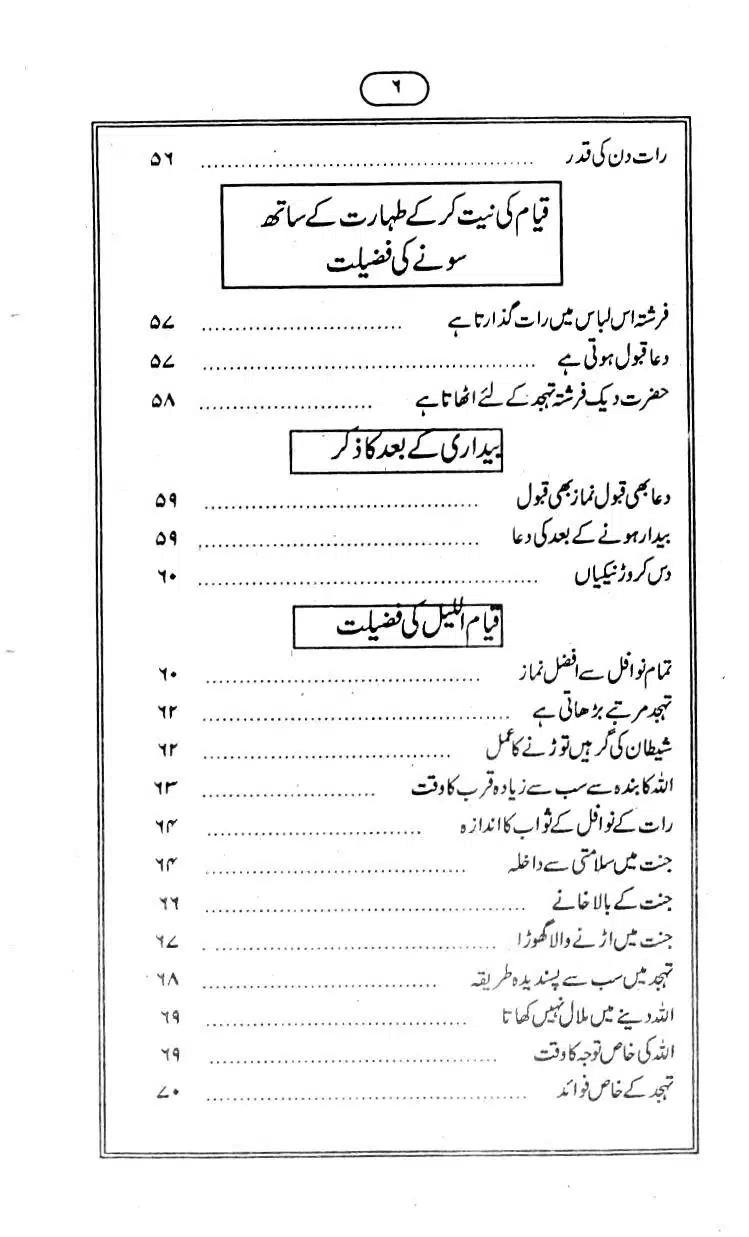 ۶
رات دن کی قدر ................................................ ۵۶
قیام کی نیت کر کے طہارت کے ساتھ
سونے کی فضیلت
فرشتہ اس لباس میں رات گذارتا ہے ............................. ۵۷
دعا قبول ہوتی ہے ................................................ ۵۷
حضرت دیک فرشتہ تہجد کے لئے اٹھاتا ہے ......................... ۵۸
بیداری کے بعد کا ذکر
دعا بھی قبول نماز بھی قبول ........................................ ۵۹
بیدار ہونے کے بعد کی دعا ........................................ ۵۹
دس کروڑ نیکیاں ................................................ ۶۰
قیام اللیل کی فضیلت
تمام نوافل سے افضل نماز ........................................ ۶۰
تہجد مرتبے بڑھاتی ہے ............................................ ۶۲
شیطان کی گرہیں توڑنے کا عمل .................................... ۶۲
اللہ کا بندہ سے سب سے زیادہ قرب کا وقت ......................... ۶۳
رات کے نوافل کے ثواب کا اندازہ ............................... ۶۴
جنت میں سلامتی سے داخلہ ...................................... ۶۴
جنت کے بالا خانے .............................................. ۶۶
جنت میں اڑنے والا گھوڑا .......................................... ۶۷
تہجد میں سب سے پسندیدہ طریقہ .................................. ۶۸
اللہ دینے میں ملال نہیں کھاتا ...................................... ۶۹
اللہ کی خاص توجہ کا وقت .......................................... ۶۹
تہجد کے خاص فوائد .............................................. ۷۰